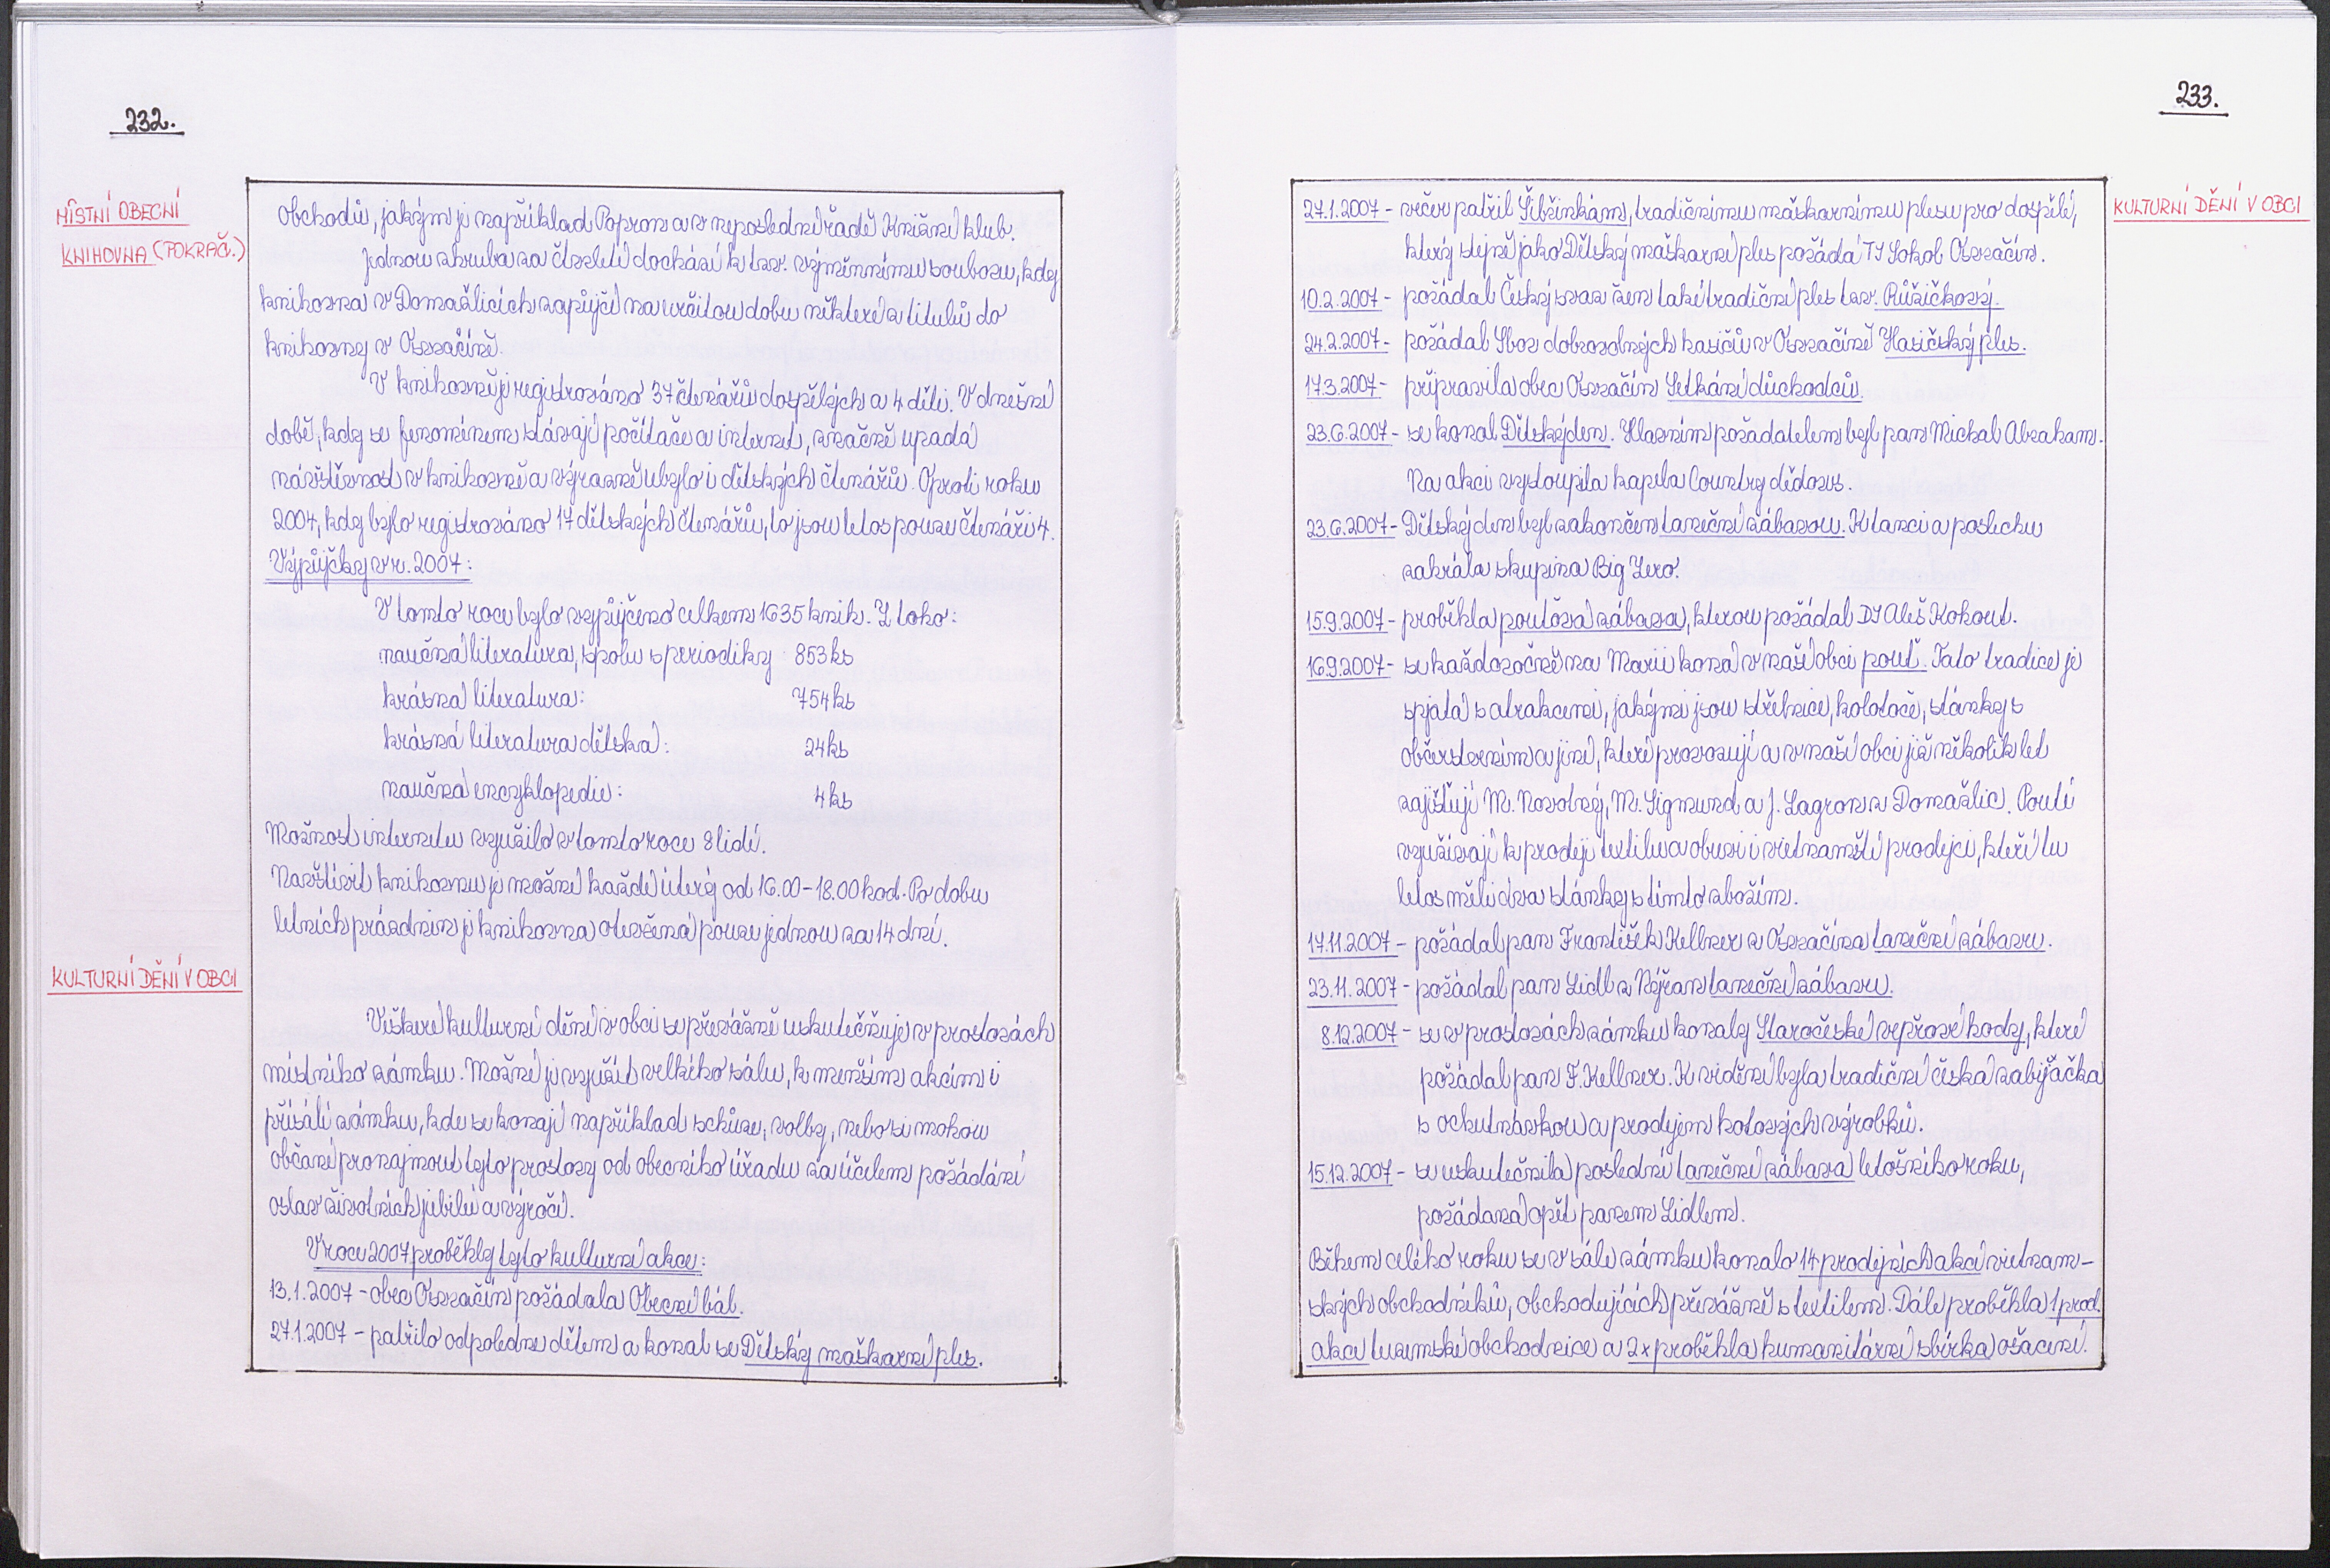 232.
MÍSTNÍ OBECNÍ
KNIHOVNA (POKRAČ.)
obchodů, jakým je například Popron a v neposlední řadě Knižní klub.
Jednou zhruba za čtvrtletí dochází k tzv. výměnnímu souboru, kdy
knihovna v Domažlicích zapůjčí na určitou dobu některé z titulů do
knihovny v Osvračíně.
V knihovně je registrováno 37 čtenářů dospělých a 4 děti. V dnešní
době, kdy se fenoménem stávají počítače a internet, značně upadá
návštěvnost v knihovně a výrazně ubylo i dětských čtenářů. Oproti roku
2004, kdy bylo registrováno 17 dětských čtenářů, to jsou letos pouze čtenáři 4.
Výpůjčky v r. 2007:
V tomto roce bylo vypůjčeno celkem 1635 knih. Z toho:
naučná literatura, spolu s periodiky 853 ks
krásná literatura: 754 ks
krásná literatura dětská: 24 ks
naučná encyklopedie: 4 ks
Možnost internetu využilo v tomto roce 8 lidí.
Navštívit knihovnu je možné každé úterý od 16.00-18.00 hod. Po dobu
letních prázdnin je knihovna otevřená pouze jednou za 14 dní.
KULTURNÍ DĚNÍ V OBCI
Veškeré kulturní dění v obci se převážně uskutečňuje v prostorách
místního zámku. Možné je využít velkého sálu, k menším akcím i
přísálí zámku, kde se konají například schůze, volby, nebo si mohou
občané pronajmout tyto prostory od obecního úřadu za účelem pořádání
oslav životních jubileí a výročí.
V roce 2007 proběhly tyto kulturní akce:
13.1.2007 - obec Osvračín pořádala Obecní bál.
27.1.2007 - patřilo odpoledne dětem a konal se Dětský maškarní ples.
233.
KULTURNÍ DĚNÍ V OBCI
27.1.2007 - večer patřil Šibřinkám, tradičnímu maškarnímu plesu pro dospělé,
který stejně jako Dětský maškarní ples pořádá TJ Sokol Osvračín.
10.2.2007 - pořádal Český svaz žen také tradiční ples tzv. Růžičkový.
24.2.2007 - pořádal Sbor dobrovolných hasičů v Osvračíně Hasičský ples.
17.3.2007 - připravila obec Osvračín Setkání důchodců.
23.6.2007 - se konal Dětský den. Hlavním pořadatelem byl pan Michal Abraham.
Na akci vystoupila kapela Country dědovs.
23.6.2007 - Dětský den byl zakončen taneční zábavou. K tanci a poslechu
zahrála skupina Big Zero.
15.9.2007 - proběhla pouťová zábava, kterou pořádal DJ Aleš Kohout.
16.9.2007 - se každoročně na Marii koná v naší obci pouť. Tato tradice je
spjatá s atrakcemi, jakými jsou střelnice, kolotoče, stánky s
občerstvením a jiné, které provozují a v naší obci již několik let
zajišťují M. Novotný, M. Sigmund a J. Lagron z Domažlic. Poutě
využívají k prodeji textilu a obuvi i vietnamští prodejci, kteří tu
letos měli dva stánky s tímto zbožím.
17.11.2007 - pořádal pan František Kellner z Osvračína taneční zábavu.
23.11.2007 - pořádal pan Seidl z Nýřan taneční zábavu.
8.12.2007 - se v prostorách zámku konaly Staročeské vepřové hody, které
pořádal pan F. Kellner. K vidění byla tradiční česká zabijačka
s ochutnávkou a prodejem hotových výrobků.
15.12.2007 - se uskutečnila poslední taneční zábava letošního roku,
pořádaná opět panem Seidlem.
Během celého roku se v sále zámku konalo 14 prodejních akcí vietnam-
ských obchodníků, obchodujících převážně s textilem. Dále proběhla 1 prod.
akce tuzemské obchodnice a 2x proběhla humanitární sbírka ošacení.